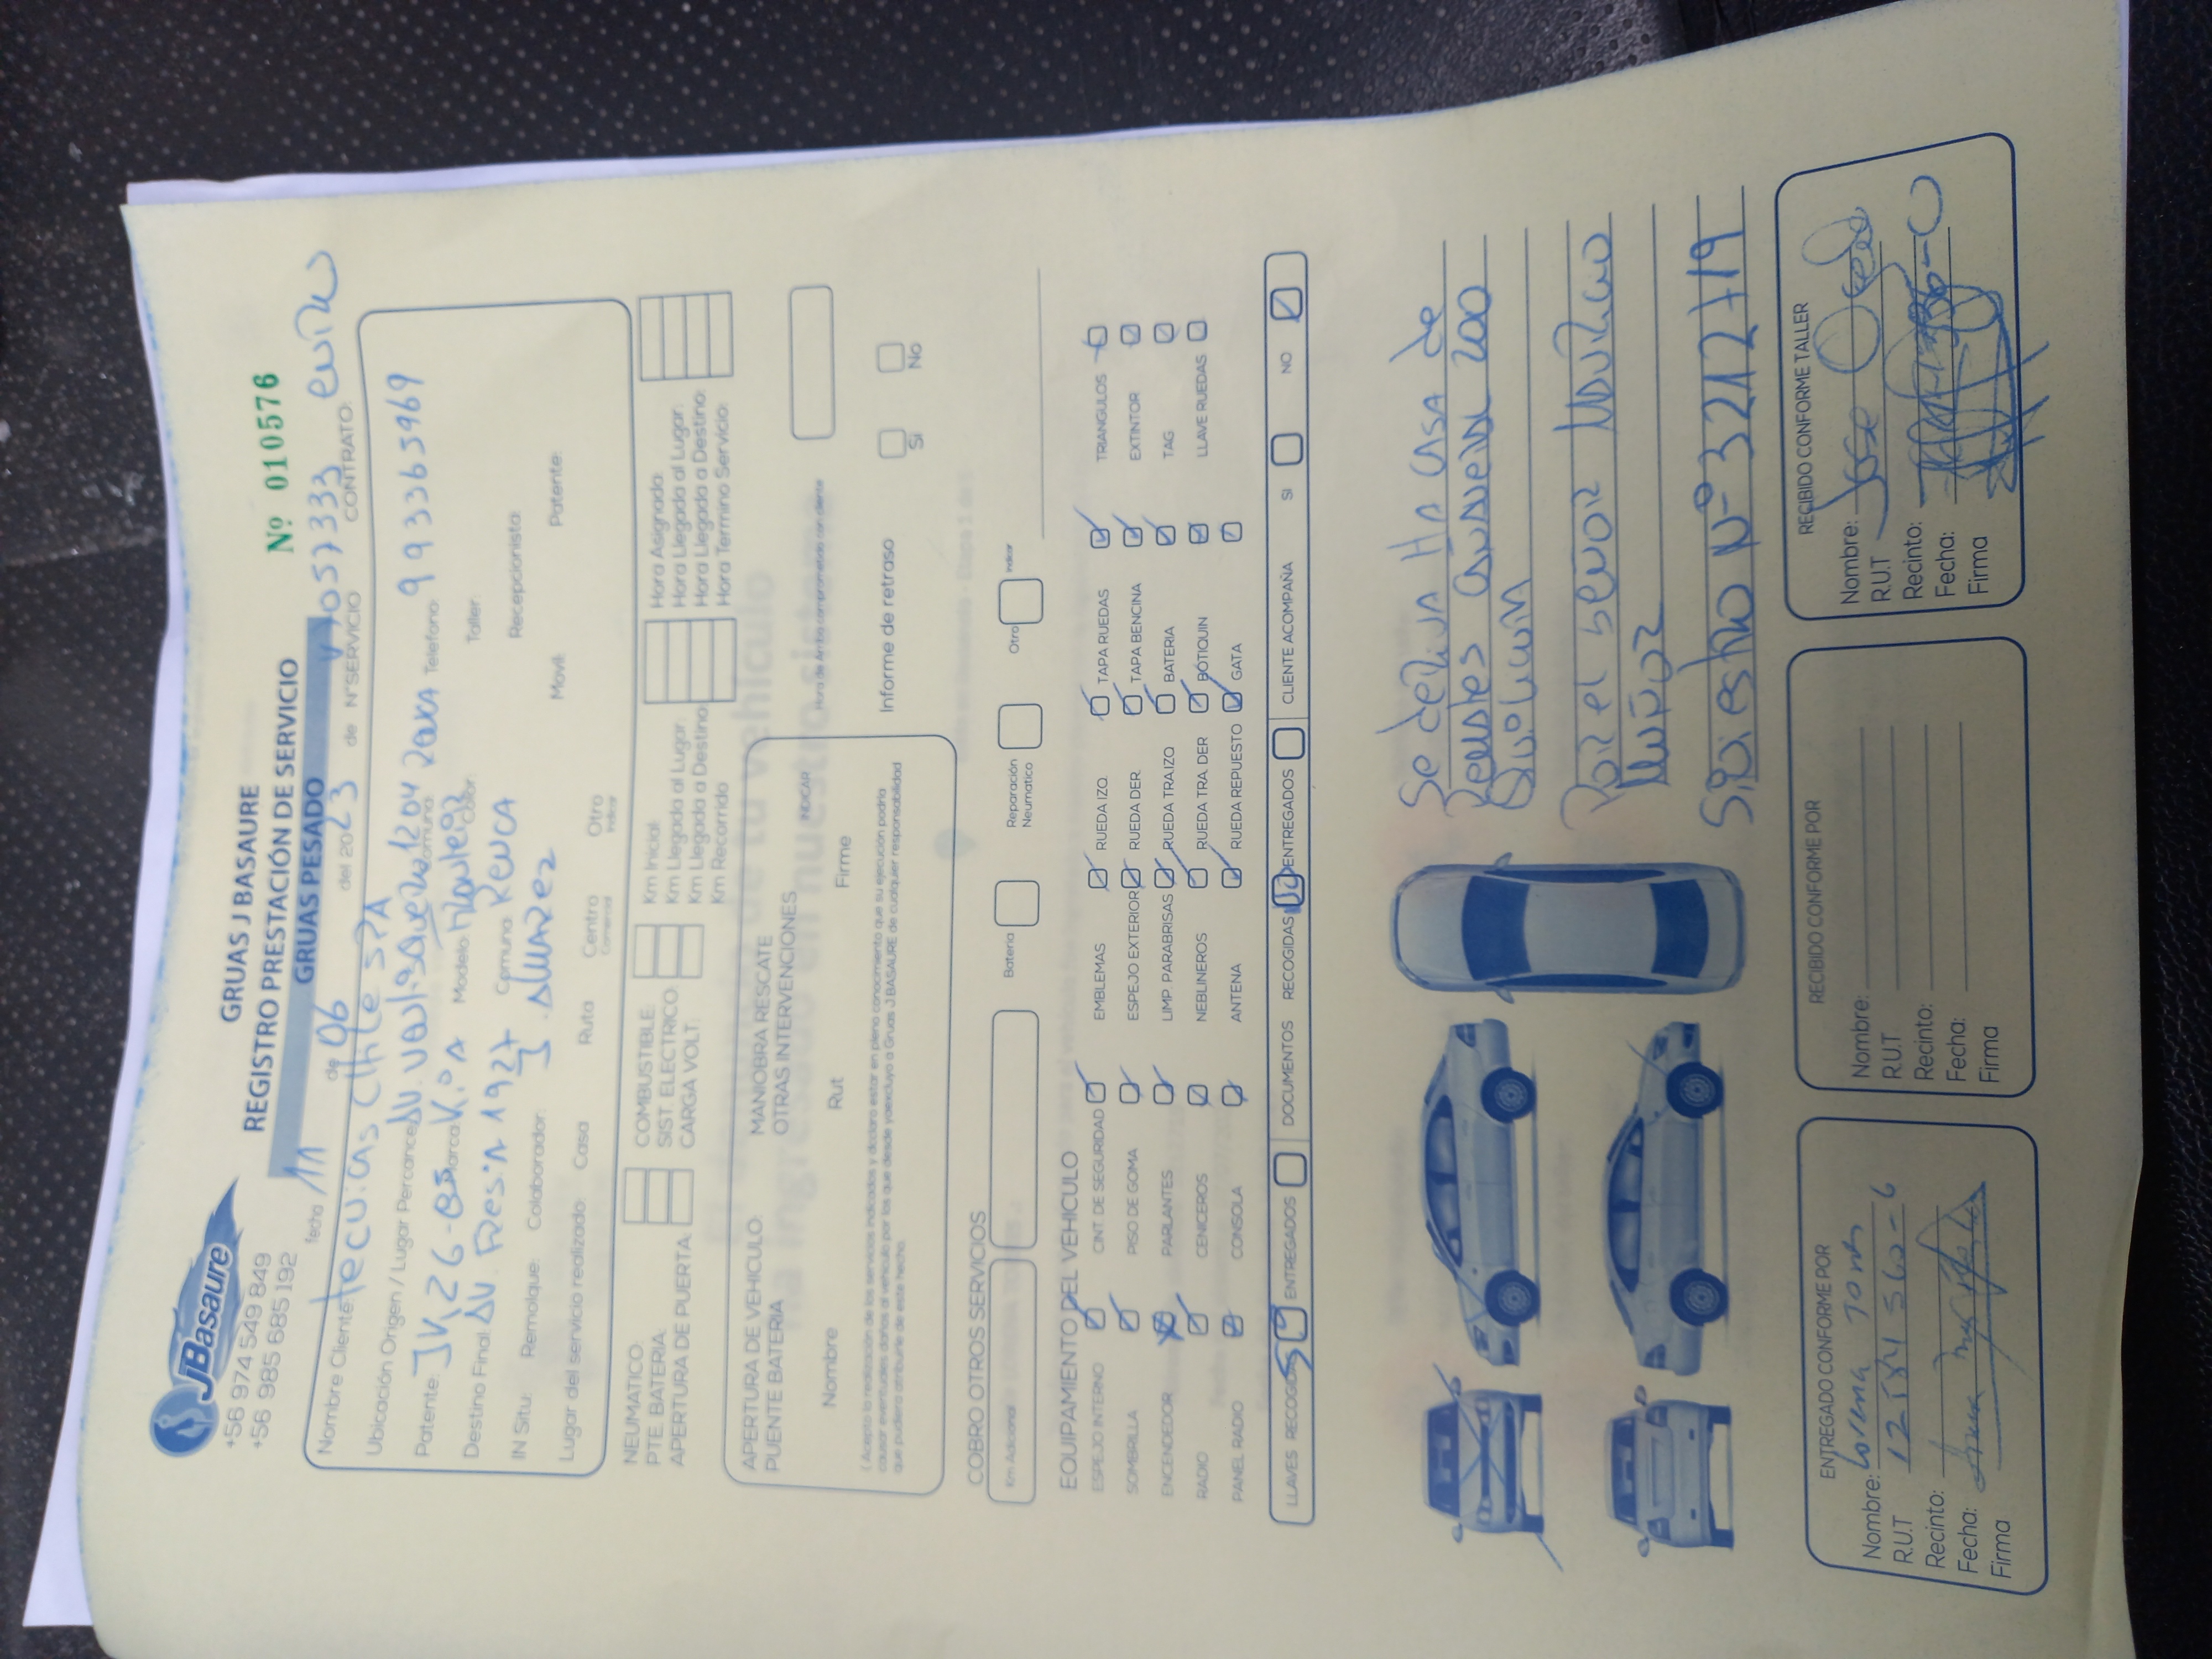 jBasaure
+56 974 549 849
+56 985 685 192
GRUAS J BASAURE
REGISTRO PRESTACIÓN DE SERVICIO
GRUAS PESADO
Nº 010576
fecha 11 de 06 del 2023 de NºSERVICIO CONTRATO:
Nombre Cliente: tecuias chile SPA
Ubicación Origen / Lugar Percance: AV. 1204 Comuna: Telefono: 993365969
Patente: JV Marca: Kia Modelo: Color: Taller:
Destino Final: AV. Fresia 1927 Comuna: Renca Recepcionista:
IN Situ: Remolque: Colaborador: J. Alvarez Movil: Patente:
Lugar del servicio realizado: Casa Ruta Centro Comercial Otro Indicar
NEUMATICO: COMBUSTIBLE: Km Inicial: Hora Asignada:
PTE. BATERIA: SIST. ELECTRICO: Km Llegada al Lugar: Hora Llegada al Lugar:
APERTURA DE PUERTA: CARGA VOLT: Km Llegada a Destino: Hora Llegada a Destino:
Km Recorrido Hora Termino Servicio:
APERTURA DE VEHICULO: MANIOBRA RESCATE
PUENTE BATERIA OTRAS INTERVENCIONES INDICAR
Nombre Rut Firme
( Acepto la realización de los servicios indicados y declaro estar en pleno conocimiento que su ejecución podría
causar eventuales daños al vehículo por los que desde ya excluyo a Gruas J.BASAURE de cualquier responsabilidad
que pudiera atribuirle de este hecho.
Informe de retraso Si No
COBRO OTROS SERVICIOS
Km Adicional Bateria Reparación Neumatico Otro Indicar
EQUIPAMIENTO DEL VEHICULO
ESPEJO INTERNO CINT. DE SEGURIDAD EMBLEMAS RUEDA IZQ. TAPA RUEDAS TRIANGULOS
SOMBRILLA PISO DE GOMA ESPEJO EXTERIOR RUEDA DER. TAPA BENCINA EXTINTOR
ENCENDEDOR PARLANTES LIMP. PARABRISAS RUEDA TRA IZQ BATERIA TAG
RADIO CENICEROS NEBLINEROS RUEDA TRA DER BOTIQUIN LLAVE RUEDAS
PANEL RADIO CONSOLA ANTENA RUEDA REPUESTO GATA
LLAVES RECOGIDAS ENTREGADOS DOCUMENTOS RECOGIDAS ENTREGADOS CLIENTE ACOMPAÑA SI NO
Se deriva Ha casa de
200
Por el señor
Muñoz
Siniestro Nº 3212719
ENTREGADO CONFORME POR
Nombre: Lorena
R.U.T
Recinto:
Fecha:
Firma
RECIBIDO CONFORME POR
Nombre:
R.U.T
Recinto:
Fecha:
Firma
RECIBIDO CONFORME TALLER
Nombre: Jose
R.U.T
Recinto:
Fecha:
Firma